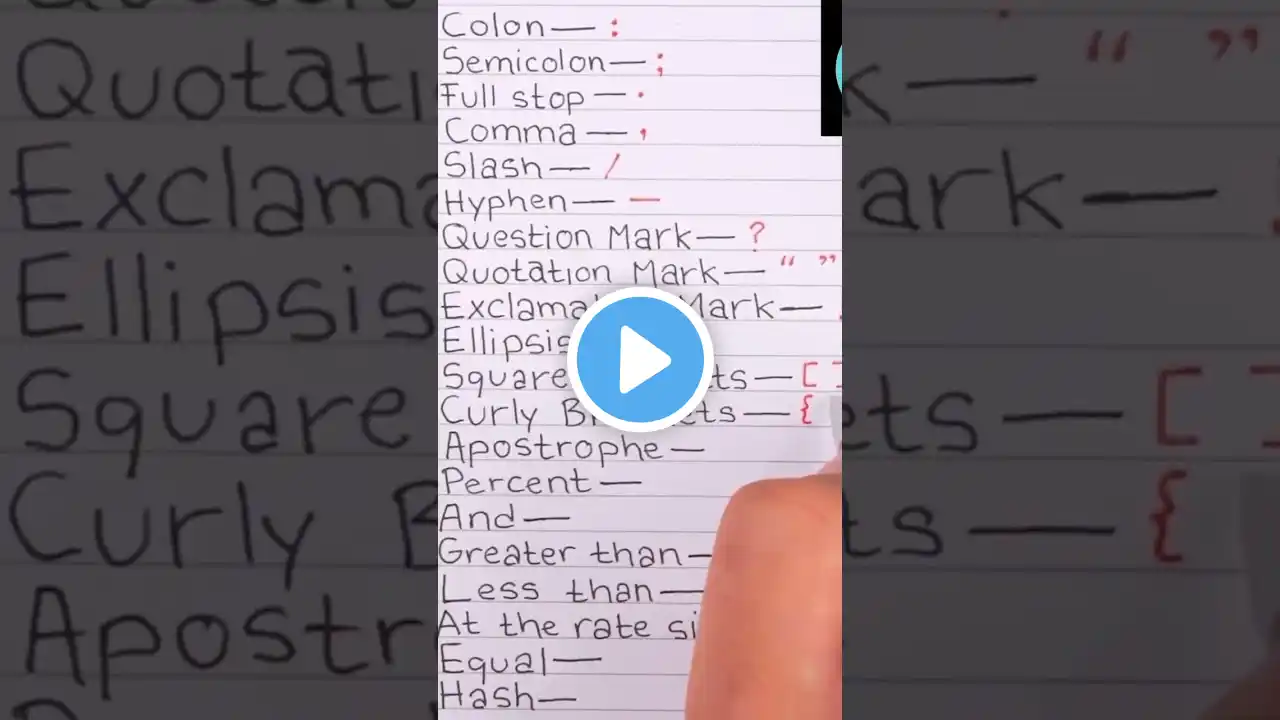 Colon — :
Semicolon — ;
Full stop — .
Comma — ,
Slash — /
Hyphen — -
Question Mark — ?
Quotation Mark — “ ”
Exclama Mark —
Ellipsis
Square ts — [ ]
Curly B ets — {
Apostrophe —
Percent —
And —
Greater than —
Less than —
At the rate si
Equal —
Hash —